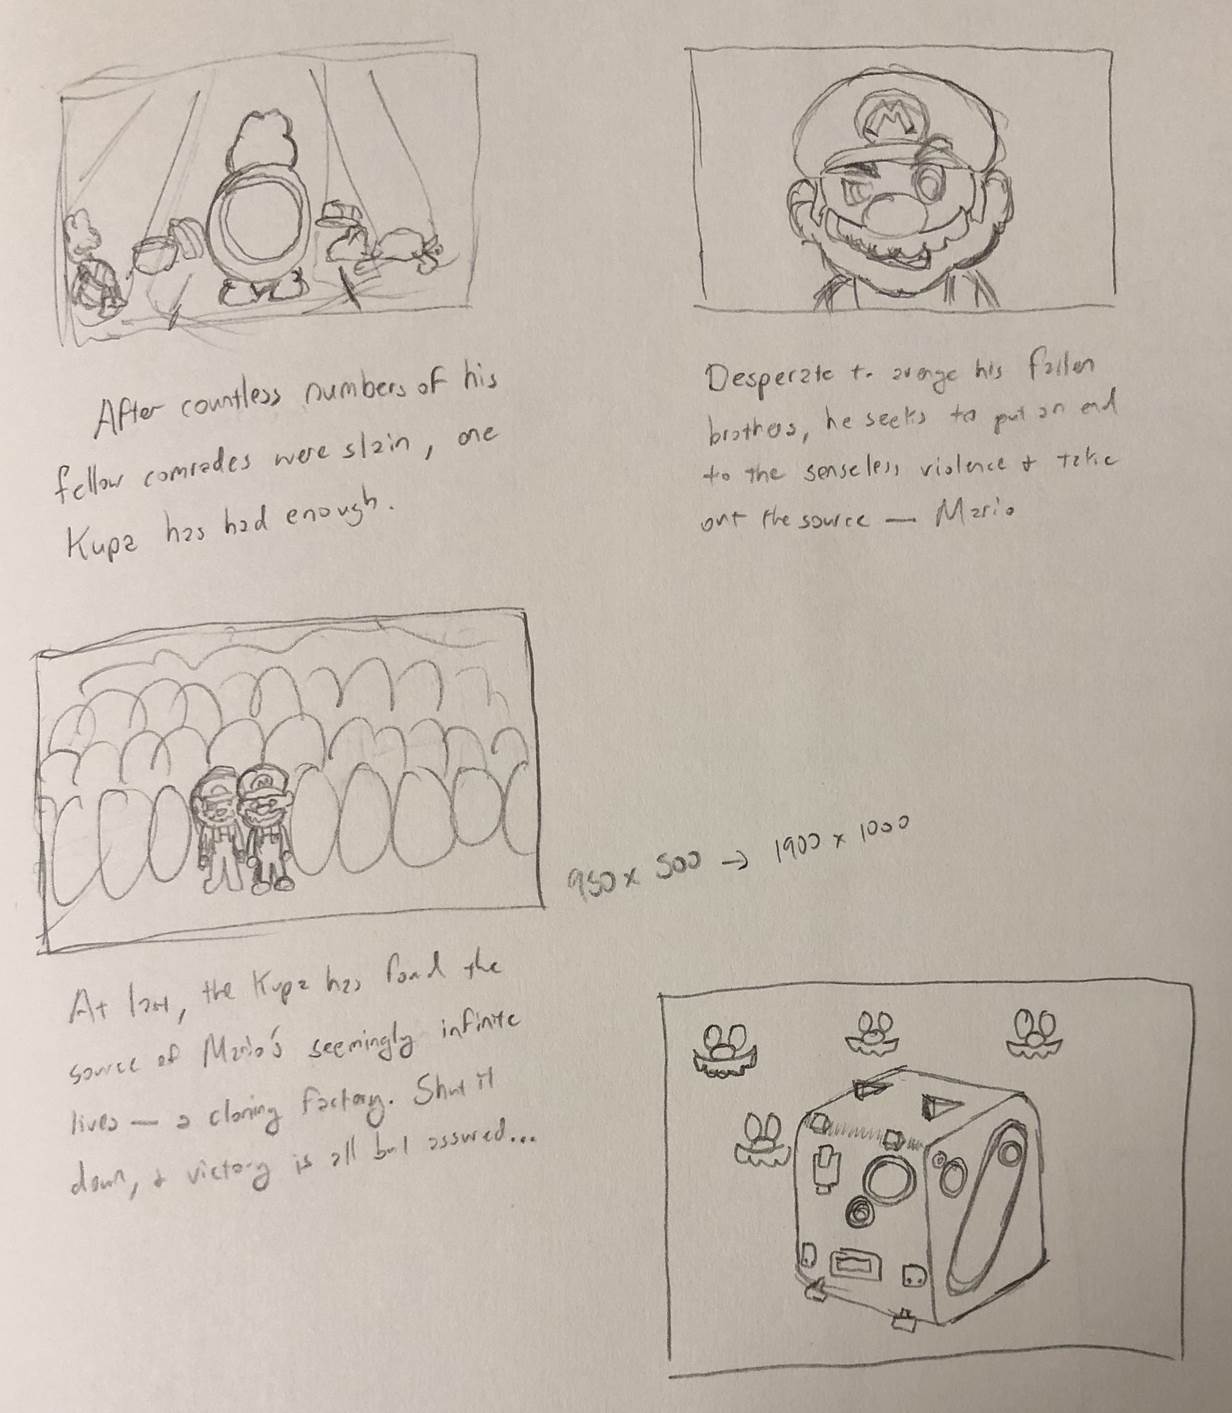 After countless numbers of his
fellow comrades were slain, one
Kupa has had enough.
M
Desperate to avenge his fallen
brothers, he seeks to put an end
to the senseless violence & take
out the source — Mario
M
950 x 500 → 1900 x 1000
At last, the Kupa has found the
source of Mario's seemingly infinite
lives — a cloning factory. Shut it
down, & victory is all but assured...